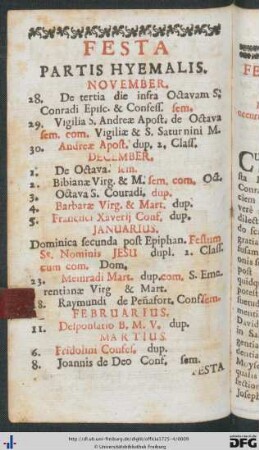 FESTA
PARTIS HYEMALIS.
NOVEMBER.
28. De tertia die infra Octavam S.
Conradi Episc. & Confess. sem.
29. Vigilia S. Andreæ Apost. de Octava
sem. com. Vigiliæ & S. Saturnini M.
30. Andreæ Apost. dup. 2. Class.
DECEMBER.
1. De Octava. sem.
2. Bibianæ Virg. & M. sem. com. Oct.
3. Octava S. Conradi, dup.
4. Barbaræ Virg. & Mart. dup.
5. Francisci Xaverij Conf. dup.
JANUARIUS.
Dominica secunda post Epiphan. Festum
Ss. Nominis JESU dupl. 2. Class.
cum com. Dom.
23. Meinradi Mart. dup. com. S. Eme-
rentianæ Virg & Mart.
Raymundi de Peñafort. Conf. sem.
FEBRUARIUS.
11. Desponsatio B. M. V. dup.
MARTIUS.
6. Fridolini Confes. dup.
8. Joannis de Deo Conf. sem.
FESTA
http://dl.ub.uni-freiburg.de/diglit/officia1725-4/0009
© Universitätsbibliothek Freiburg
DFG